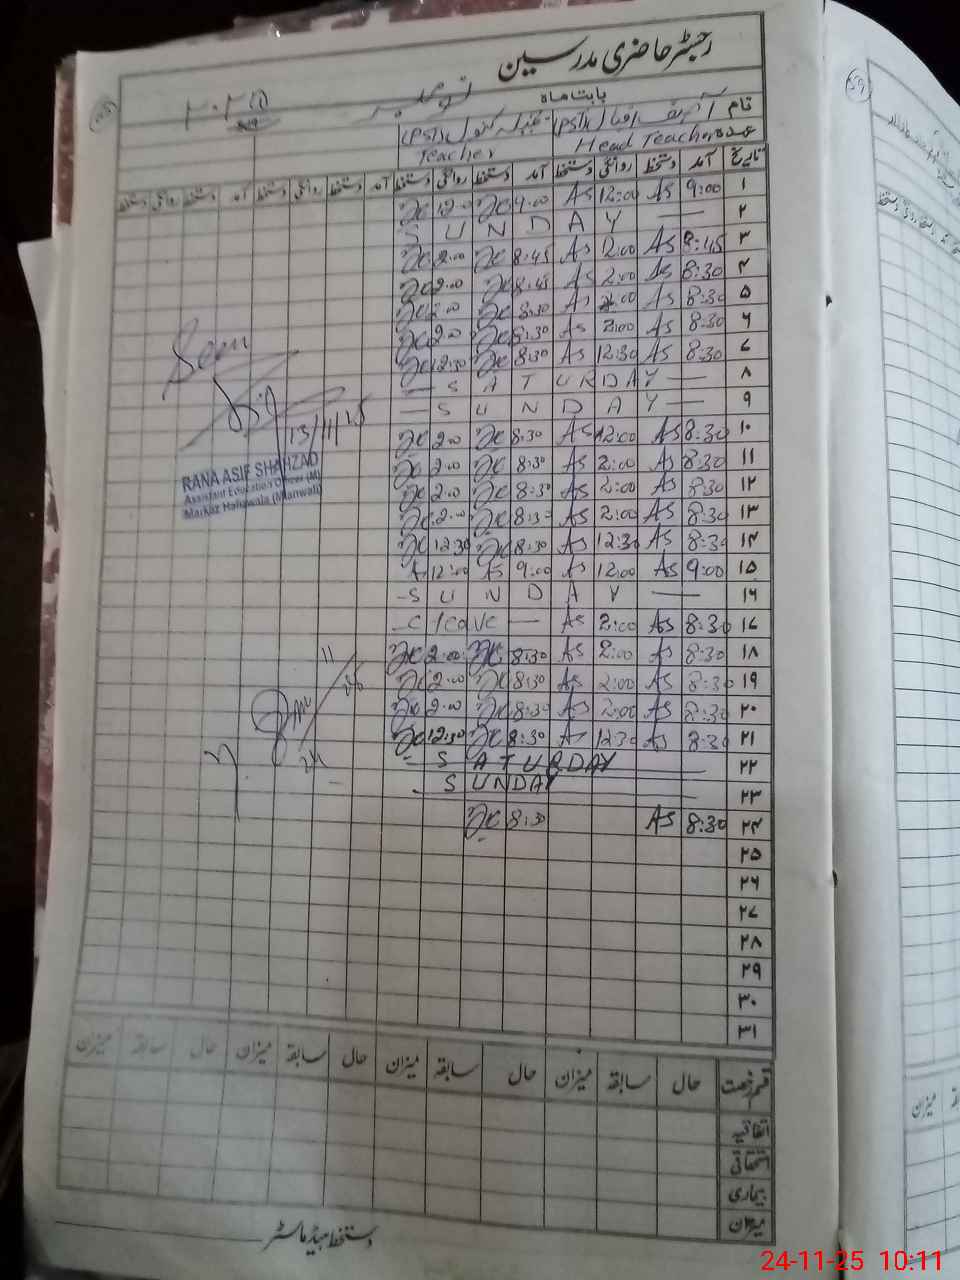 رجسٹر حاضری مدرسین
بابت ماہ نومبر ۲۰۲۵
نام
عہدہ Head Teacher (PST) Teacher (PST)
تاریخ آمد دستخط روانگی دستخط آمد دستخط روانگی دستخط آمد دستخط روانگی دستخط آمد دستخط روانگی دستخط
۱ 9:00 AS 12:00 AS 9:00 12:00
۲ SUNDAY
۳ 8:45 AS 2:00 AS 8:45 2:00
۴ 8:30 AS 2:00 AS 8:45 2:00
۵ 8:30 AS 2:00 AS 8:30 2:00
۶ 8:30 AS 2:00 AS 8:30 2:00
۷ 8:30 AS 12:30 AS 8:30 12:30
۸ SATURDAY
۹ SUNDAY
۱۰ 8:30 AS 2:00 AS 8:30 2:00
۱۱ 8:30 AS 2:00 AS 8:30 2:00
۱۲ 8:30 AS 2:00 AS 8:30 2:00
۱۳ 8:30 AS 2:00 AS 8:30 2:00
۱۴ 8:30 AS 12:30 AS 8:30 12:30
۱۵ 9:00 AS 12:00 AS 9:00 AS 12:00
۱۶ SUNDAY
۱۷ 8:30 AS 2:00 AS C leave
۱۸ 8:30 AS 2:00 AS 8:30 2:00
۱۹ 8:30 AS 2:00 AS 8:30 2:00
۲۰ 8:30 AS 2:00 AS 8:30 2:00
۲۱ 8:30 AS 12:30 AS 8:30 12:30
۲۲ SATURDAY
۲۳ SUNDAY
۲۴ 8:30 AS 8:30
۲۵
۲۶
۲۷
۲۸
۲۹
۳۰
۳۱
Seen
13/11/25
RANA ASIF SHAHZAD
Assistant Education Officer (M)
Markaz Hafizwala (Mianwali)
قسم رخصت حال سابقہ میزان حال سابقہ میزان حال سابقہ میزان حال سابقہ میزان
اتفاقیہ
استحقاقی
بیماری
میزان
دستخط ہیڈ ماسٹر
24-11-25 10:11